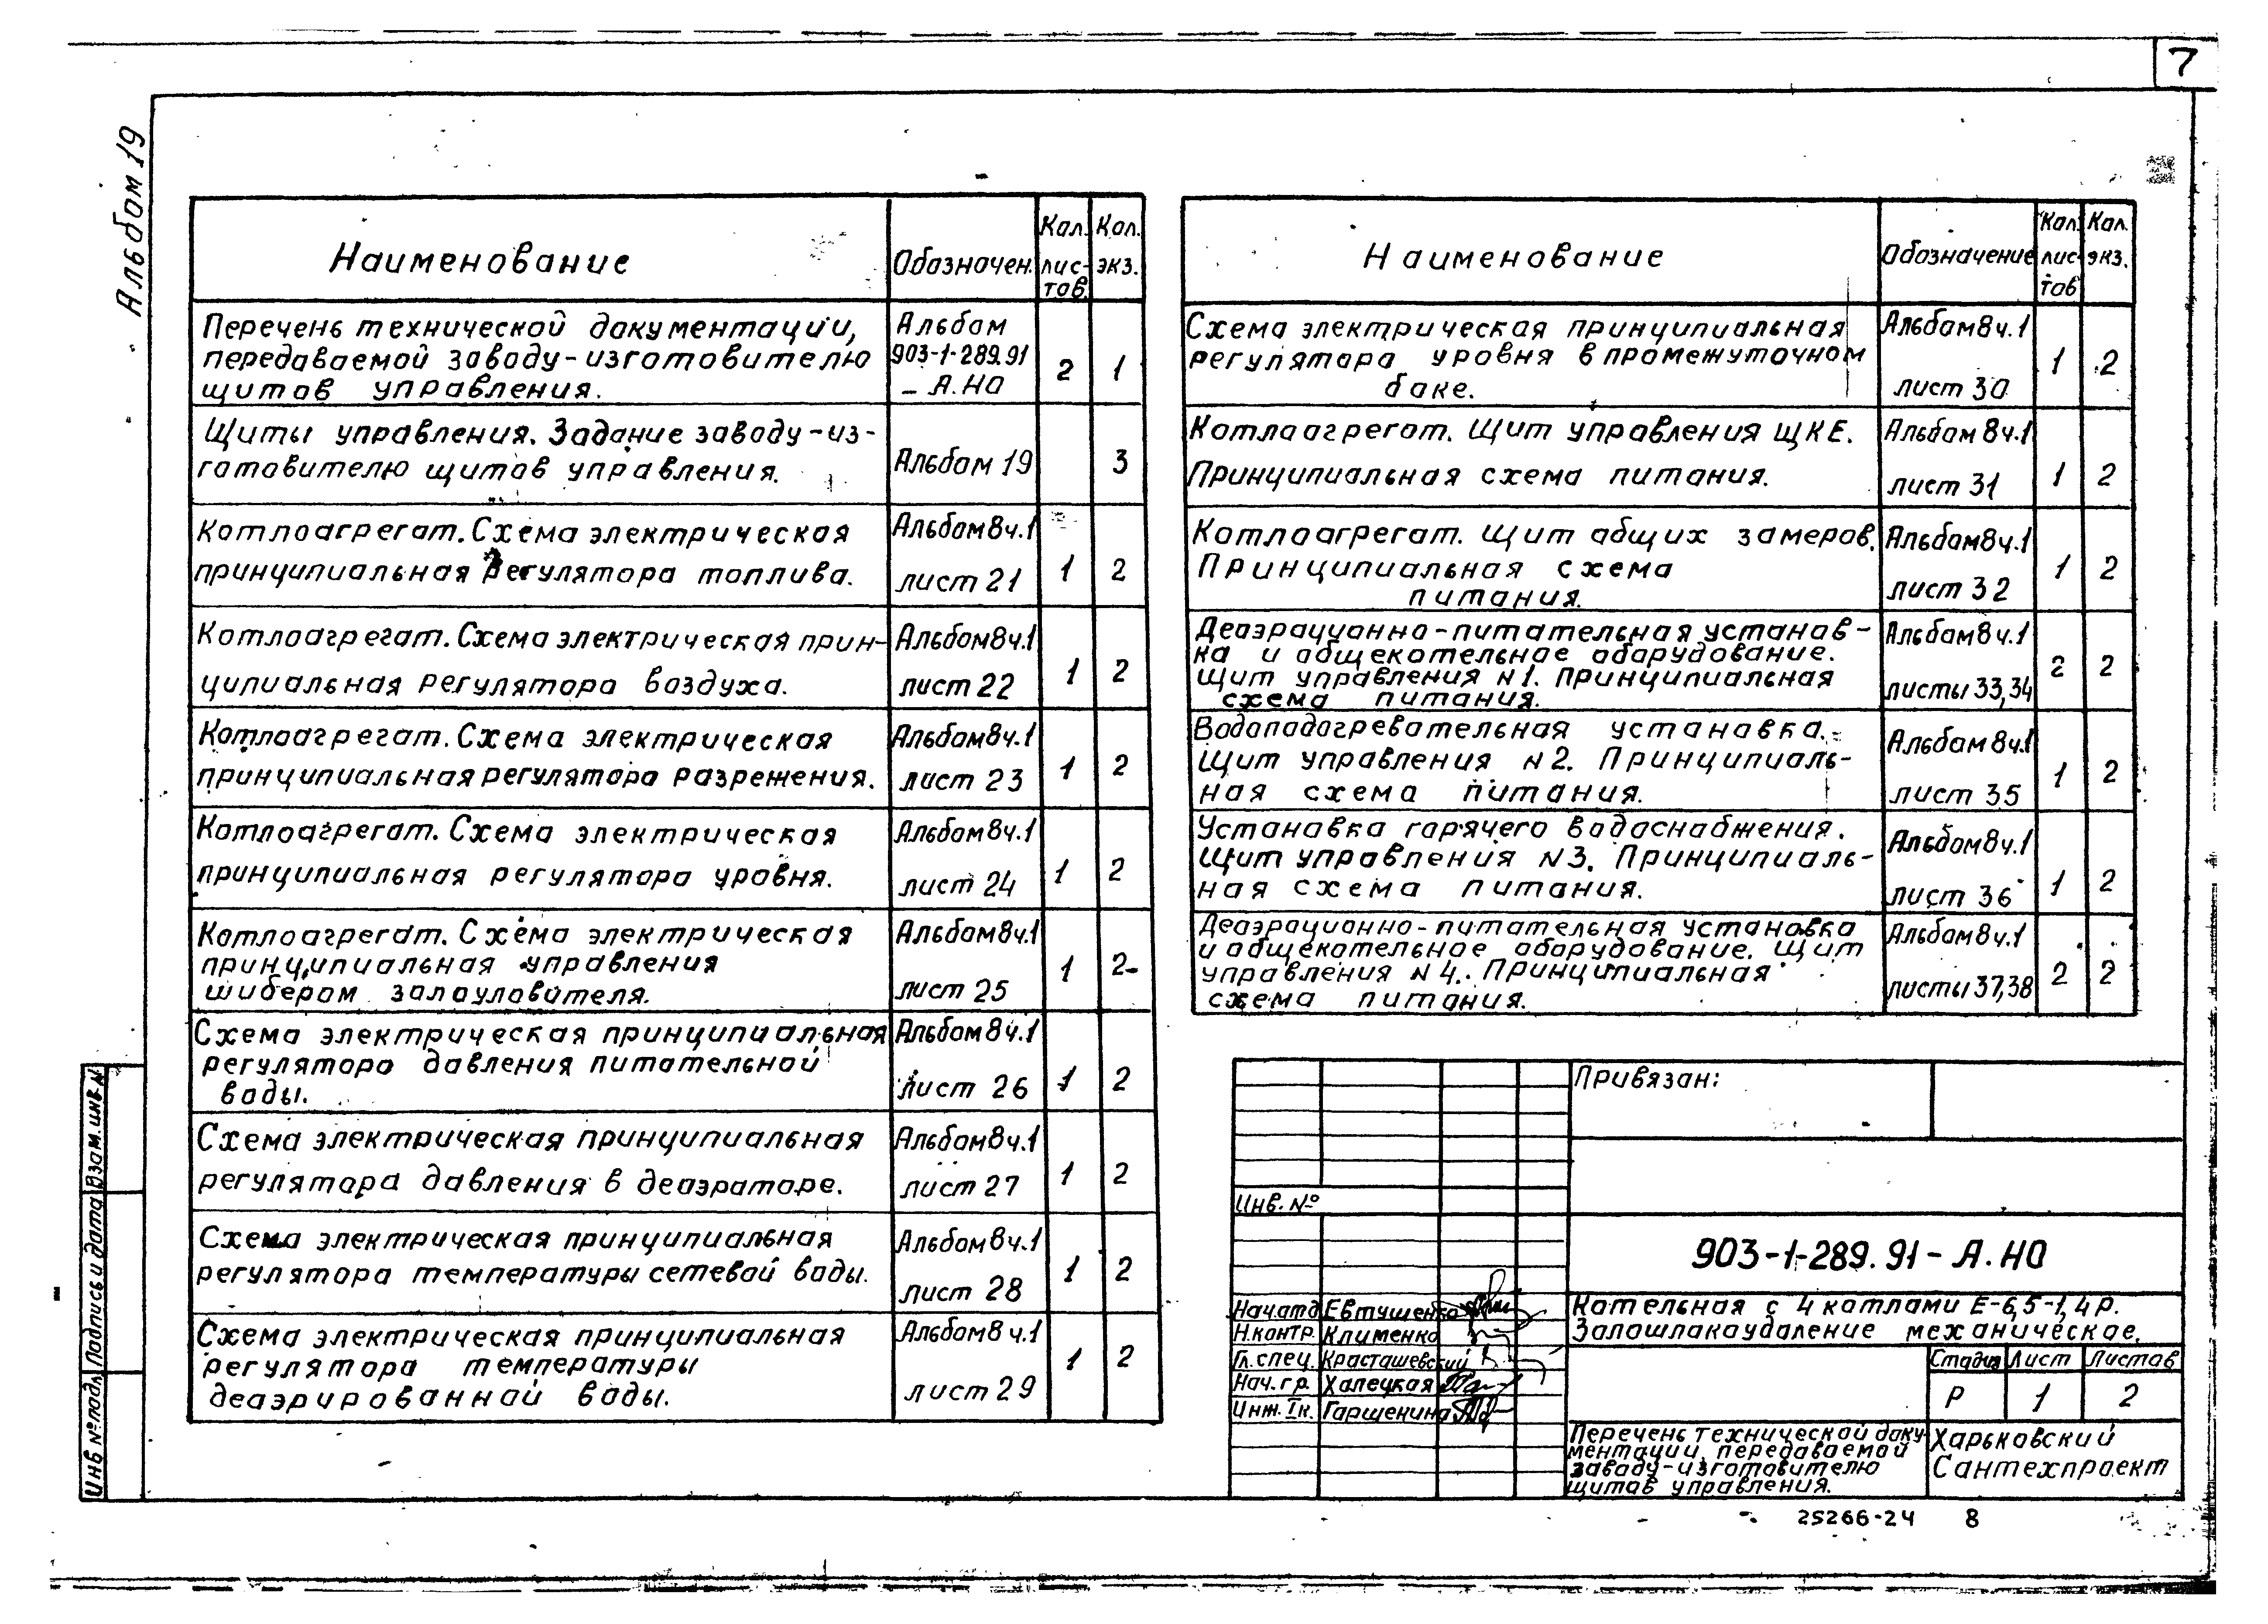 7
Альбом 19
Наименование
Обозначен.
Кол. листов.
Кол. экз.
Перечень технической документации,
передаваемой заводу-изготовителю
щитов управления.
Альбом
903-1-289.91
- А.НО
2
1
Щиты управления. Задание заводу-из-
готовителю щитов управления.
Альбом 19
3
Котлоагрегат. Схема электрическая
принципиальная регулятора топлива.
Альбом 8 ч.1
лист 21
1
2
Котлоагрегат. Схема электрическая прин-
ципиальная регулятора воздуха.
Альбом 8 ч.1
лист 22
1
2
Котлоагрегат. Схема электрическая
принципиальная регулятора разрежения.
Альбом 8 ч.1
лист 23
1
2
Котлоагрегат. Схема электрическая
принципиальная регулятора уровня.
Альбом 8 ч.1
лист 24
1
2
Котлоагрегат. Схема электрическая
принципиальная управления
шибером золоуловителя.
Альбом 8 ч.1
лист 25
1
2
Схема электрическая принципиальная
регулятора давления питательной
воды.
Альбом 8 ч.1
лист 26
1
2
Схема электрическая принципиальная
регулятора давления в деаэраторе.
Альбом 8 ч.1
лист 27
1
2
Схема электрическая принципиальная
регулятора температуры сетевой воды.
Альбом 8 ч.1
лист 28
1
2
Схема электрическая принципиальная
регулятора температуры
деаэрированной воды.
Альбом 8 ч.1
лист 29
1
2
Наименование
Обозначение
Кол. листов
Кол. экз.
Схема электрическая принципиальная
регулятора уровня в промежуточном
баке.
Альбом 8 ч.1
лист 30
1
2
Котлоагрегат. Щит управления ЩКЕ.
Принципиальная схема питания.
Альбом 8 ч.1
лист 31
1
2
Котлоагрегат. Щит общих замеров.
Принципиальная схема
питания.
Альбом 8 ч.1
лист 32
1
2
Деаэрационно-питательная установ-
ка и общекотельное оборудование.
Щит управления N1. Принципиальная
схема питания.
Альбом 8 ч.1
листы 33,34
2
2
Водоподогревательная установка.
Щит управления N2. Принципиаль-
ная схема питания.
Альбом 8 ч.1
лист 35
1
2
Установка горячего водоснабжения.
Щит управления N3. Принципиаль-
ная схема питания.
Альбом 8 ч.1
лист 36
1
2
Деаэрационно-питательная установка
и общекотельное оборудование. Щит
управления N4. Принципиальная
схема питания.
Альбом 8 ч.1
листы 37,38
2
2
Привязан:
Инв. №
903-1-289.91-А.НО
Нач.отд. Евтушенко
Н.контр. Клименко
Гл.спец. Красташевский
Нач.гр. Халецкая
Инж. Iк. Гаршенина
Котельная с 4 котлами Е-6,5-1,4Р.
Золошлакоудаление механическое.
Стадия Лист Листов
Р 1 2
Перечень технической доку-
ментации, передаваемой
заводу-изготовителю
щитов управления.
Харьковский
Сантехпроект
Инв № подл. Подпись и дата Взам. инв. N
25266-24 8